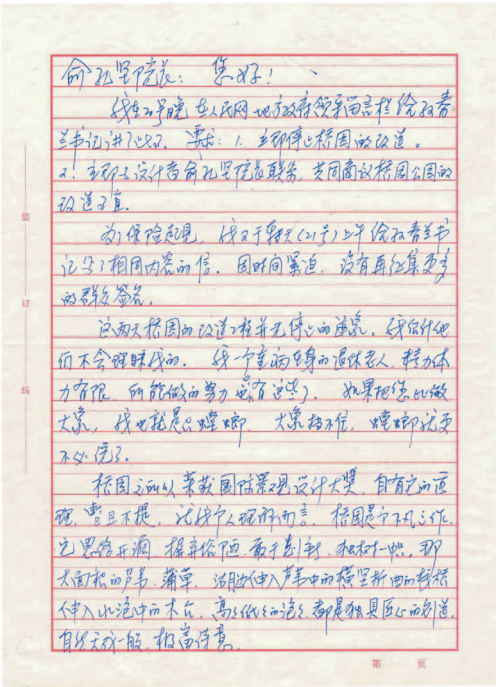 俞孔坚院长：您好！
我在20号晚在人民网地方政府领导留言栏给
书记讲了此事。要求：1. 立即停止桥园的改造。
2. 立即与设计者俞孔坚院长联系，共同商议桥园公园的
改造事宜。
为了保险起见，我又于 (21号)上午给 书
记写了相同内容的信。因时间紧迫，没有再征集更多
的群众签名。
这两天桥园的改造工程并无停止的迹象，我估计他
们不会理睬我的。我一个重病在身的退休老人，精力体
力有限，所能做的努力也有这些了。如果把您比做
大象，我也就是只螳螂 大象挡不住，螳螂就更
不必说了。
桥园之所以荣获国际景观设计大奖，自有它的道
理，暂且不提，法我个人理解而言，桥园是个不凡之作，
它思路开阔，摒弃俗陋，敢于创新，独树一帜。那
大面积的芦苇、蒲草、湖边伸入芦苇中的横竖折曲的栈桥
伸入水泡中的木台，高高低低的泡泡都是独具匠心的创造，
自然天成一般，极富诗意。
装
订
线
第 页